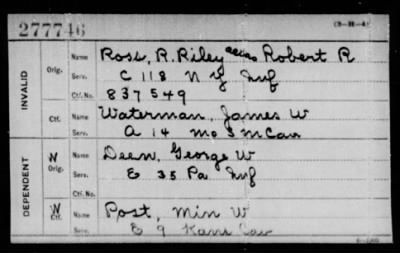 277746
(3-H-4)
INVALID
Orig.
Name Ross, R. Riley alias Robert R
Serv. C 118 N Y Inf
Ctf. No. 837549
Ctf.
Name Waterman, James W
Serv. A 14 Mo S M Cav
DEPENDENT
W
Orig.
Name Deen, George W
Serv. E 35 Pa Inf
Ctf. No.
W
Ctf.
Name Post, Min W
Serv. E 9 Kans Cav